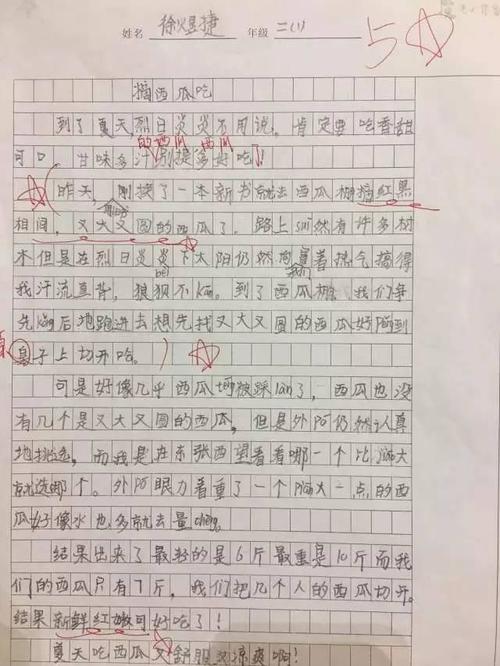 姓名 徐煜捷 年级 二(1)
5
摘西瓜吃
到了夏天,烈日炎炎不用说。肯定要吃香甜
的西瓜 西瓜
可口,甘味多汁别提多好吃!
昨天,刚换了一本新书就去西瓜棚摘红黑
相间,又大又圆的西瓜了。路上sui然有许多树
木但是在烈日炎炎下太阳仍然向着热气搞得
我们
我汗流直背,狼狈不kan。到了西瓜棚,我们争
先kǒng后地跑进去想先找又大又圆的西瓜好拍到
桌子上切开吃。
可是好像几乎西瓜都被踩làn了,西瓜也没
有几个是又大又圆的西瓜,但是外pó仍然认真
地挑选,而我是在东张西望看看哪一个比较大
就选哪个。外pó眼力看重了一个pian大一点的西
瓜好像水也多就去量chèng。
结果出来了最轻的是6斤最重是10斤而我
们的西瓜只有7斤,我们把几个人的西瓜切开。
结果新鲜红嫩可好吃了!
夏天吃西瓜又舒服又凉爽啊!